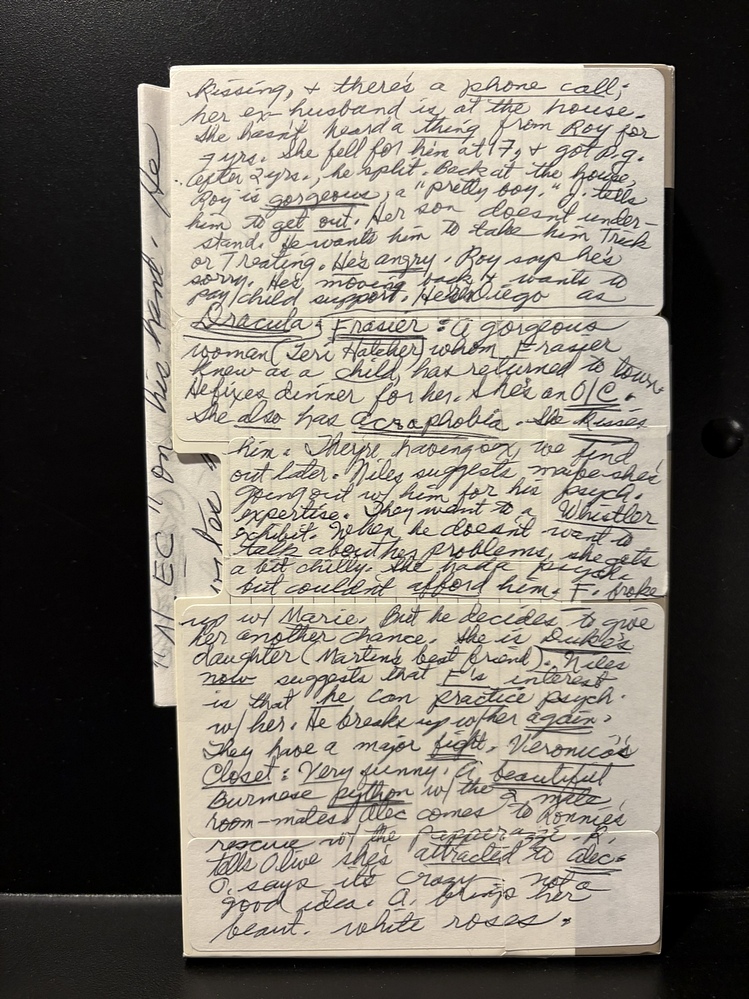 kissing, + there's a phone call;
her ex-husband is at the house.
She hasn't heard a thing from Roy for
7 yrs. She fell for him at 17, + got p.g.
After 2 yrs., he split. Back at the house,
Roy is gorgeous, a "pretty boy." J. tells
him to get out. Her son doesn't under-
stand. He wants him to take him Trick
or Treating. He's angry. Roy says he's
sorry. He's moving back + wants to
pay child support. He's Diego as
Dracula; Frasier: A gorgeous
woman (Teri Hatcher) whom Frasier
knew as a child, has returned to town.
He fixes dinner for her. She's an O/C.
She also has acrophobia. She kisses
him. They're having, we find
out later. Niles suggests maybe she's
going out w/ him for his psych.
expertise. They want to a Whistler
exhibit. When he doesn't want to
talk about her problems, she gets
a bit chilly. She had a psych.
but couldn't afford him. F. broke
up w/ Marie. But he decides to give
her another chance. She is Duke's
daughter (Martin's best friend). Niles
now suggests that F's interest
is that he can practice psych.
w/ her. He breaks up w/ her again.
They have a major fight. Veronica's
Closet: Very funny. A beautiful
Burmese python w/ the 2 male
room-mates. Alec comes to Ronnie's
rescue w/ the Papparazzi. R.
tells Olive she's attracted to Alec.
O. says its crazy; not a
good idea. A. brings her
beaut. white roses.
" on his hand. He